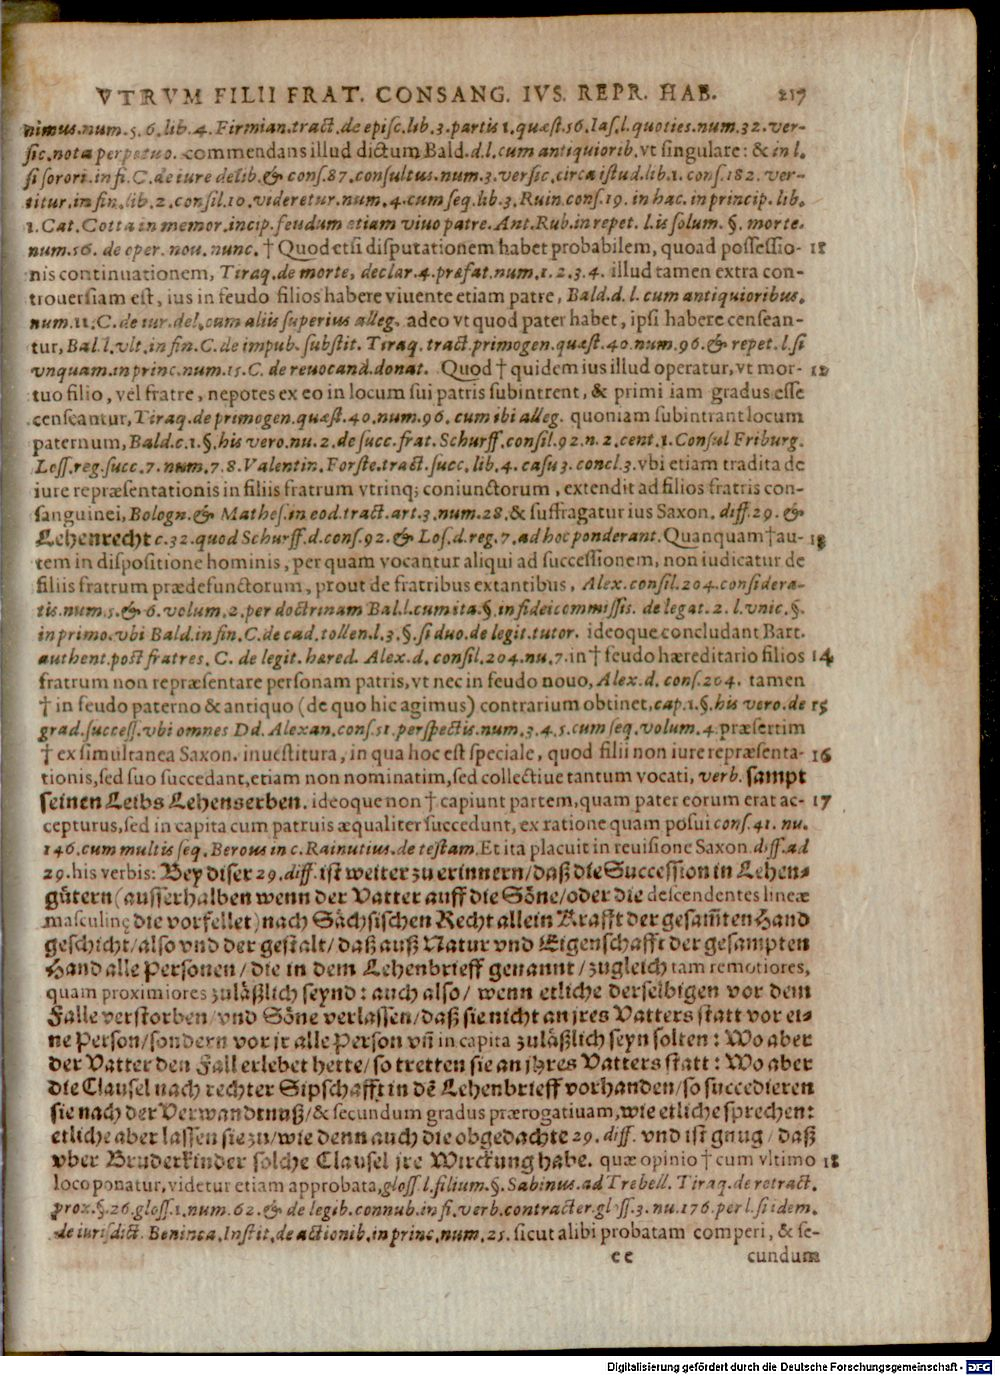 VTRVM FILII FRAT. CONSANG. IVS. REPR. HAB. 217
nimus.num.5.6.lib.4.Firmian.tract.de episc.lib.3.partis 1.quæst.56.Ias.l.quoties.num.32.ver-
sic.nota perpetuo. commendans illud dictum Bald.d.l.cum antiquiorib.vt singulare: & in l.
si sorori.in fi.C.de iure delib.& cons.87.consultus.num.3.versic.circa istud.lib.1.cons.182.ver-
titur.in fin.lib.2.consil.10.videretur.num.4.cum seq.lib.3.Ruin.cons.19.in hac.in princip.lib.
1.Cat.Cotta in memor.incip.feudum etiam viuo patre.Ant.Rub.in repet.l.is solum.§.morte.
num.56.de oper.nou.nunc. † Quod etsi disputationem habet probabilem, quoad possessio- 11
nis continuationem, Tiraq.de morte, declar.4.præfat.num.1.2.3.4. illud tamen extra con-
trouersiam est, ius in feudo filios habere viuente etiam patre, Bald.d.l.cum antiquioribus.
num.11.C.de iur.del.cum aliis superius alleg. adeo vt quod pater habet, ipsi habere censean-
tur, Bal.l.vlt.in fin.C.de impub.substit. Tiraq.tract.primogen.quæst.40.num.96.& repet.l.si
vnquam.in princ.num.15.C. de reuocand.donat. Quod † quidem ius illud operatur, vt mor- 12
tuo filio, vel fratre, nepotes ex eo in locum sui patris subintrent, & primi iam gradus esse
censeantur, Tiraq.de primogen.quæst.40.num.96.cum ibi alleg. quoniam subintrant locum
paternum, Bald.c.1.§.his vero.nu.2.de succ.frat.Schurff.consil.92.n.2.cent.1.Consul Friburg.
Loss.reg.succ.7.num.7.8.Valentin.Forste.tract.succ.lib.4.casu 3.concl.3.vbi etiam tradita de
iure repræsentationis in filiis fratrum vtrinq; coniunctorum, extendit ad filios fratris con-
sanguinei, Bologn.& Mathes.in eod.tract.art.3.num.28.& suffragatur ius Saxon.diff.29.&
Lehenrecht c.32.quod Schurff.d.cons.92.& Los.d.reg.7.ad hoc ponderant. Quanquam † au- 13
tem in dispositione hominis, per quam vocantur aliqui ad successionem, non iudicatur de
filiis fratrum prædefunctorum, prout de fratribus extantibus, Alex.consil.204.considera-
tis.num.5.& 6.volum.2.per doctrinam Bal.l.cum ita.§.in fideicommissis.de legat.2.l.vnic.§.
in primo.vbi Bald.in fin.C.de cad.tollen.l.3.§.si duo.de legit.tutor. ideoque concludant Bart.
authent.post fratres.C. de legit.hæred. Alex.d.consil.204.nu.7.in † feudo hæreditario filios 14
fratrum non repræsentare personam patris, vt nec in feudo nouo, Alex.d.cons.204. tamen
† in feudo paterno & antiquo (de quo hic agimus) contrarium obtinet, cap.1.§.his vero.de 15
grad.success.vbi omnes Dd. Alexan.cons.51.perspectis.num.3.4.5.cum seq.volum.4.præsertim
† ex simultanea Saxon. inuestitura, in qua hoc est speciale, quod filii non iure repræsenta- 16
tionis, sed suo succedant, etiam non nominatim, sed collectiue tantum vocati, verb. sampt
seinen Leibs Lehenserben. ideoque non † capiunt partem, quam pater eorum erat ac- 17
cepturus, sed in capita cum patruis æqualiter succedunt, ex ratione quam posui cons.41.nu.
146.cum multis seq.Berous in c.Rainutius.de testam.Et ita placuit in reuisione Saxon.diff.ad
29.his verbis: Bey diser 29.diff. ist weiter zu erinnern/daß die Succession in Lehen-
gütern (ausserhalben wenn der Vatter auff die Söne/oder die descendentes lineæ
masculinę die vorfellet) nach Sächsischen Recht allein Krafft der gesam̄ten Hand
geschicht/also vnd der gestalt/daß auß Natur vnd Eigenschafft der gesampten
Hand alle Personen/die in dem Lehenbrieff genannt/zugleich tam remotiores,
quam proximiores zuläßlich seynd: auch also/ wenn etliche derselbigen vor dem
Falle verstorben/vnd Söne verlassen/daß sie nicht an jres Vatters statt vor ei-
ne Person/sondern vor jr alle Person vn̄ in capita zuläßlich seyn solten: Wo aber
der Vatter den Fall erlebet hette/so tretten sie an jhres Vatters statt: Wo aber
die Clausel nach rechter Sipschafft in dē Lehenbrieff vorhanden/so succedieren
sie nach der Verwandtnuß/& secundum gradus prærogatiuam, wie etliche sprechen:
etliche aber lassen sie zu/wie denn auch die obgedachte 29.diff. vnd ist gnug/daß
vber Bruderkinder solche Clausel jre Wirckung habe. quæ opinio † cum vltimo 18
loco ponatur, videtur etiam approbata, gloss.l.filium.§.Sabinus.ad Trebell.Tiraq.de retract.
prox.§.26.gloss.1.num.62.& de legib.connub.in fi.verb.contracter.gloss.3.nu.176.per l.si idem.
de iurisdict. Beninca.Instit.de actionib.in princ.num.25. sicut alibi probatam comperi, & se-
e e cundum
Digitalisierung gefördert durch die Deutsche Forschungsgemeinschaft - DFG